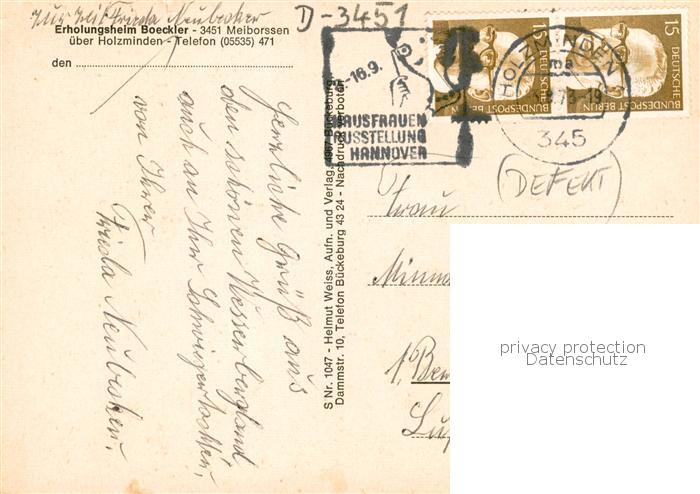 zur Zeit Frieda Neubecker
D-3451
Erholungsheim Boeckler - 3451 Meiborssen
über Holzminden - Telefon (05535) 471
den
Herzliche Grüß aus
den schönen Weserbergland
auch an Ihre Schwiegertochter,
von Ihrer
Frieda Neubecker.
S Nr. 1047 - Helmut Weiss, Aufn. und Verlag, 4967 Bückeburg,
Dammstr. 10, Telefon Bückeburg 43 24 - Nachdruck verboten
-16.9.
HAUSFRAUEN
AUSSTELLUNG
HANNOVER
15
DEUTSCHE
BUNDESPOST BERLIN
15
DEUTSCHE
BUNDESPOST BERLIN
HOLZMINDEN
ma
345
(DEFEKT)
Frau
privacy protection
Datenschutz